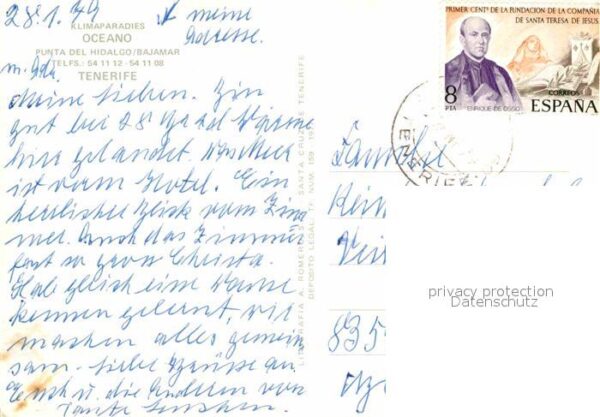 28.1.79 meine
Adresse.
KLIMAPARADIES
OCEANO
PUNTA DEL HIDALGO/BAJAMAR
TELFS.: 54 11 12 - 54 11 08
TENERIFE
Meine Lieben. Bin
gut bei 28 Grad Wärme
hier gelandet.
ist vom Hotel. Ein
herrlicher Blick vom Zim
mer. Auch das Zimmer
fast so gern Christa.
Hab gleich eine
kennen gelernt, wir
machen alles gemein
sam. Liebe Grüsse an
Euch u. die Anderen von
Tante
LITOGRAFIA A. ROMERO, S. SANTA CRUZ TENERIFE
DEPOSITO LEGAL TF. NUM. 159
PRIMER CENT. DE LA FUNDACION DE LA COMPAÑIA
DE SANTA TERESA DE JESUS
8
PTA
ENRIQUE DE OSSO
CORREOS
ESPAÑA
TENERIFE
Familie
835
privacy protection
Datenschutz